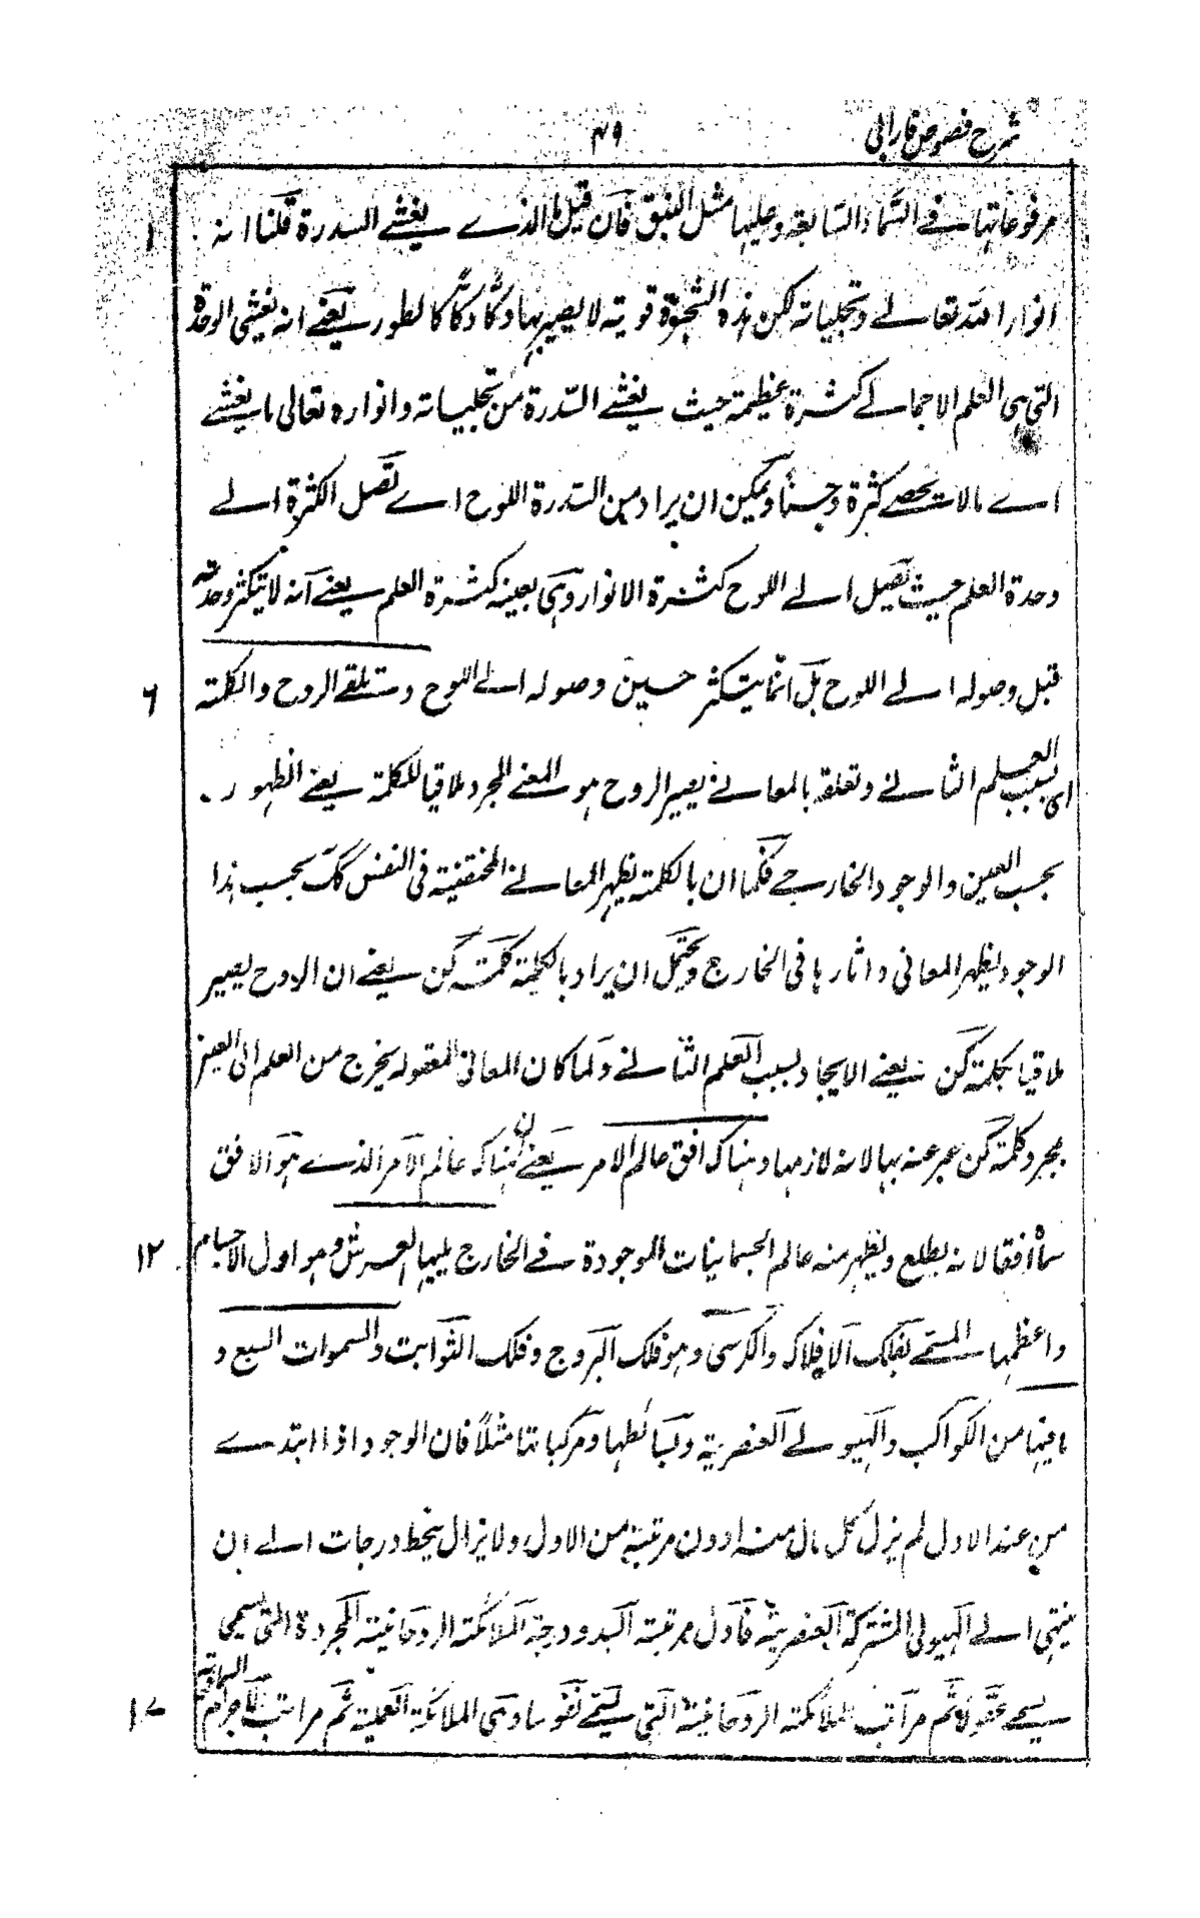 شرح فصوص فارابی
۴۹
مرفوعاتها فے السماء السابعة وعليها مثل النبق فان قيل ما الذے يغشے السدرة قلنا انه
۱
انوار الله تعالے وتجلياته لكن هذه الشجرة قوية لا يصير بها دكًّا دكًّا كالطور يعنے انه يغشی الوحدة
التی هی العلم الاجمالے كثرة عظيمة حيث يغشے السدرة من تجلياته وانواره تعالی ما يغشے
اے مالا يتحصے كثرة وحسنًا ويمكن ان يراد من السدرة اللوح اے تصل الكثرة الے
وحدة العلم حيث تصيل الے اللوح كثرة الانوار وهی بعينه كثرة العلم يعنے انه لا يتكثر وحدته
قبل وصوله الے اللوح بل انما يتكثر حين وصوله الے اللوح وستلقے الروح والكلمة
۶
ای بسبب العلم الثانے وتعلقه بالمعانے يصير الروح هو المعنے المجرد ملاقيا للكلمة يعنے الظهور
بحسب العين والوجود الخارجے فكما ان بالكلمة يظهر المعانے المختفية فی النفس كك بحسب هذا
الوجود يظهر المعانی واثارها فی الخارج ويحتمل ان يراد بالكلمة كلمة كن يعنے ان الروح يصير
ملاقيا بكلمة كن يعنے الايجاد بسبب العلم الثانے ولما كان المعانی المعقوله يخرج من العلم الی العين
بمجرد كلمة كن عبر عنه بها لانه لازمها وهناك افق عالم الامر يعنے ان هناك عالم الامر الذے هو الافق
سماه افقا لانه يطلع ويظهر منه عالم الجسمانيات الموجودة فے الخارج يليها العرش وهو اول الاجسام
۱۲
واعظمها المسمے بفلك الافلاك والكرسی وهو فلك البروج وفلك الثوابت والسموات السبع و
ما فيها من الكواكب والهيولے العنصرية وبسائطها ومركباتها مثلًا فان الوجود اذا ابتدے
من عند الاول لم يزل كل تال منه ادون مرتبة من الاول ولا يزال ينحط درجات الے ان
ينتهی الے الهيولی المشتركة العنصرية فاول مرتبة البدو درجة الملائكة الروحانية المجردة التی يسمی
يسمے عقولا ثم مراتب الملائكة الروحانية التی يسمے نفوسا وهی الملائكة العملية ثم مراتب الاجرام السماوية
۱۷